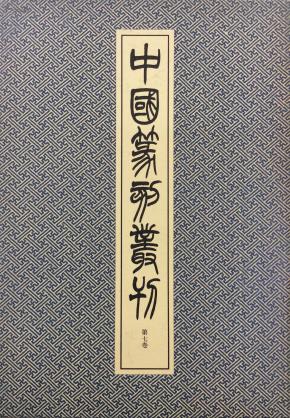 中國篆刻叢刊
第七卷